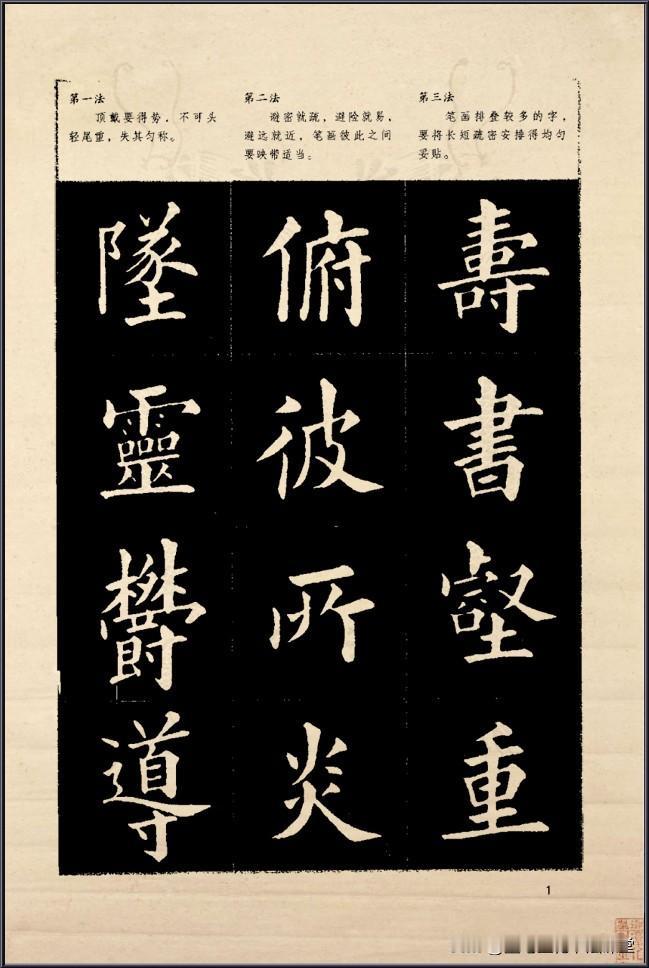 第一法
顶戴要得势，不可头
轻尾重，失其匀称。
第二法
避密就疏，避险就易，
避远就近，笔画彼此之间
要映带适当。
第三法
笔画排叠较多的字，
要将长短疏密安排得均匀
妥贴。
墜 俯 壽
靈 彼 書
鬱 所 壑
導 炎 重
1